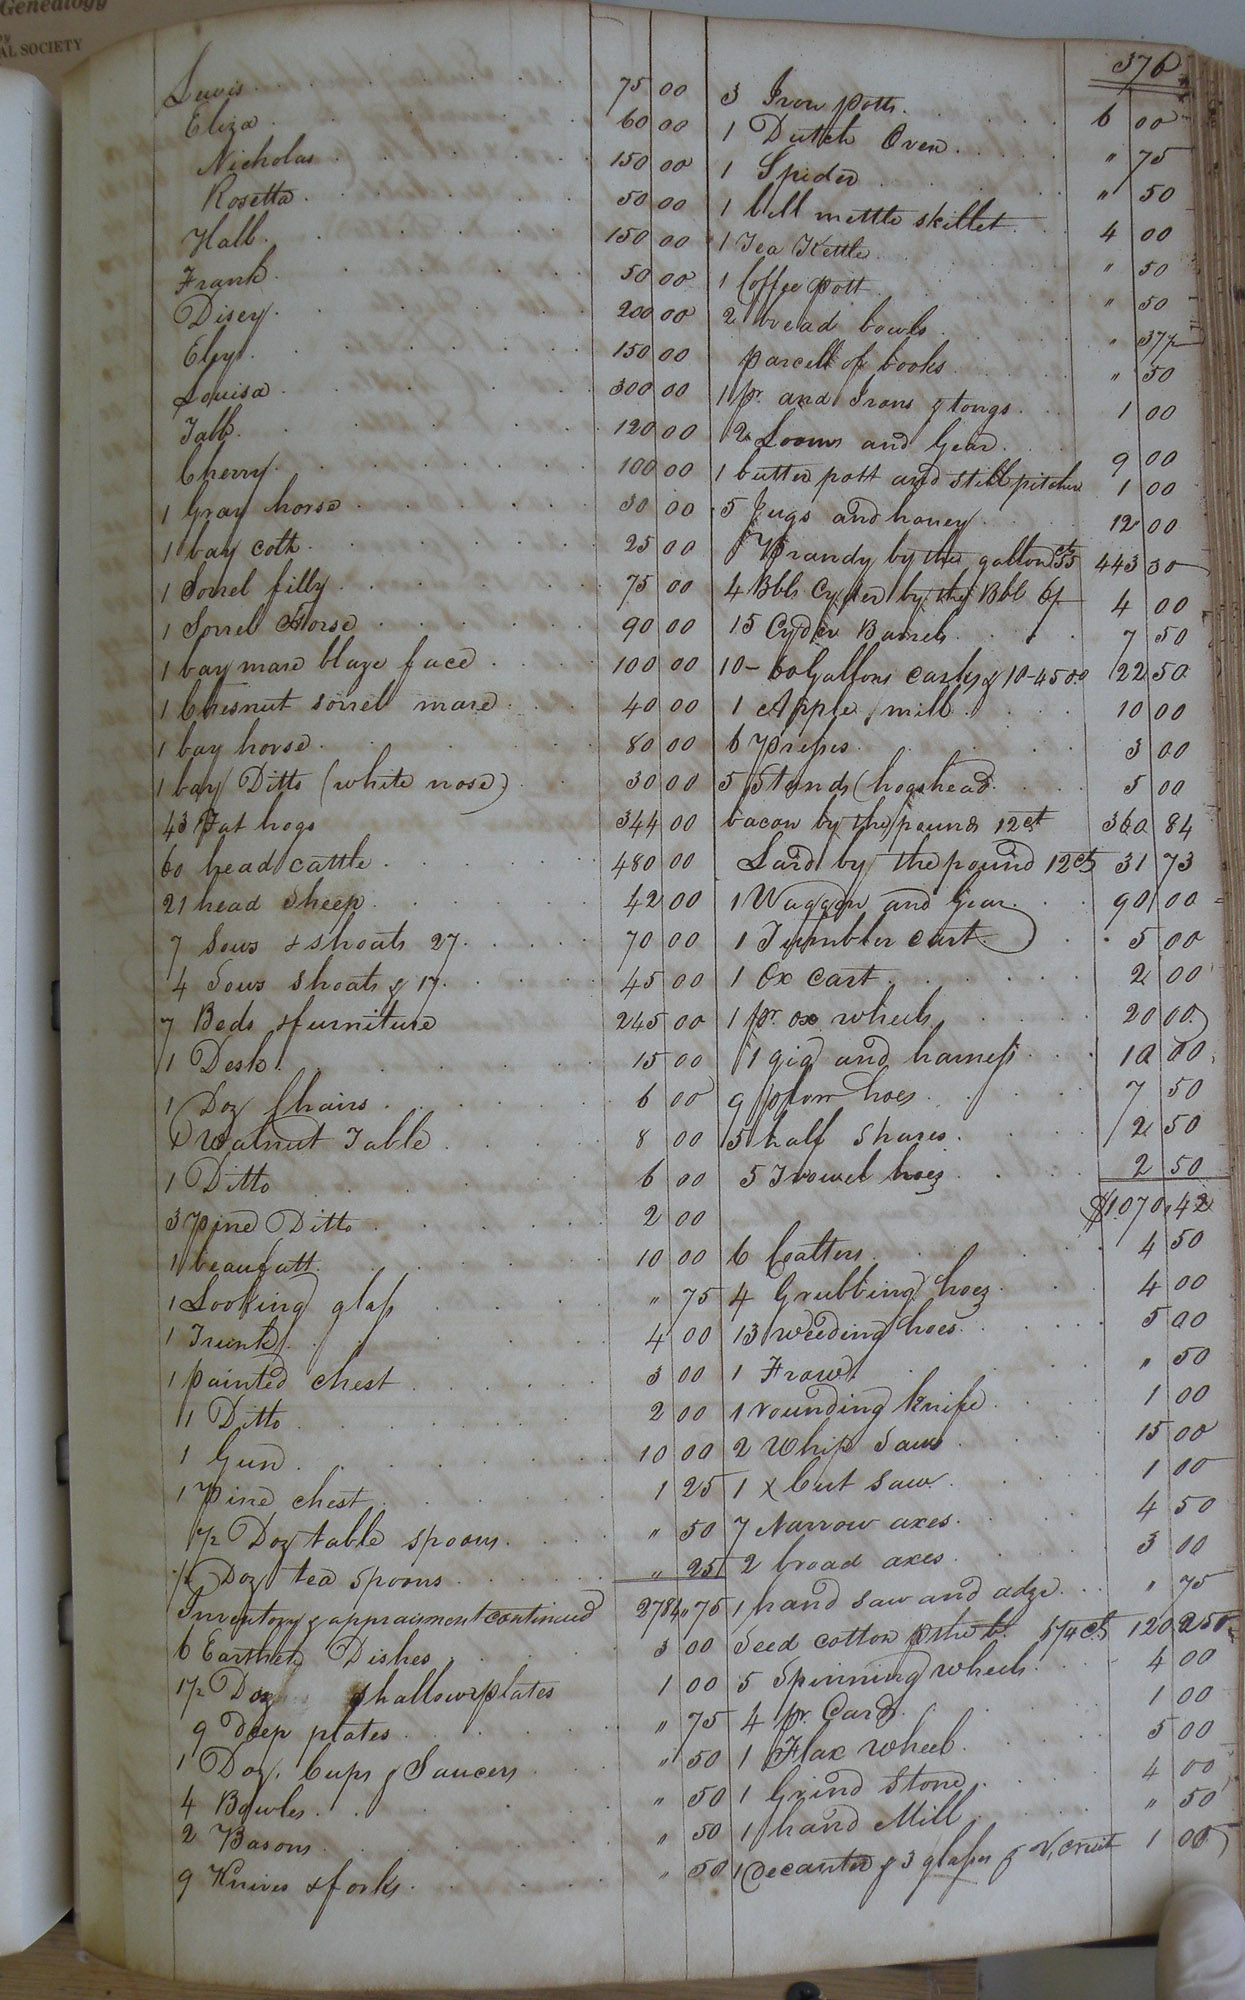 Genealogy
AL SOCIETY
376
Lewis 75 00
Eliza 60 00
Nicholas 150 00
Rosetta 50 00
Hall 150 00
Frank 50 00
Disey 200 00
Eley 150 00
Louisa 300 00
Tabb 120 00
Cherry 100 00
1 Gray horse 30 00
1 bay colt 25 00
1 Sorrel filly 75 00
1 Sorrel Horse 90 00
1 bay mare blaze face 100 00
1 Chesnut sorrel mare 40 00
1 bay horse 80 00
1 bay Ditto (white nose) 30 00
43 Fat hogs 344 00
60 head cattle 480 00
21 head Sheep 42 00
7 Sows & shoats 27 70 00
4 Sows shoats & 17 45 00
7 Beds & furniture 245 00
1 Desk 15 00
1 Doz Chairs 6 00
1 Walnut Table 8 00
1 Ditto 6 00
3 Pine Ditto 2 00
1 beaufatt 10 00
1 Looking glass " 75
1 Trunk 4 00
1 painted chest 3 00
1 Ditto 2 00
1 Gun 10 00
1 Pine chest 1 25
1/2 Doz table spoons " 50
1/2 Doz tea Spoons " 25
Inventory & appraisment continued 2784 " 75
6 Earthen Dishes 3 00
1/2 Doz shallow plates 1 00
9 Deep plates " 75
1 Doz. Cups & Saucers " 50
4 Bowles " 50
2 Basons " 50
9 Knives & forks " 50
3 Iron potts 6 00
1 Dutch Oven " 75
1 Spider " 50
1 bell mettle skillet 4 00
1 Tea Kettle " 50
1 Coffee pott " 50
2 bread bowls " 37 1/2
parcell of books " 50
1 pr. and Irons & tongs 1 00
2 Looms and Gear 9 00
1 butter pott and still pitcher 1 00
5 Jugs and honey 12 00
Brandy by the gallon 55 cts 443 30
4 Bbls Cyder by the Bbl 6/ 4 00
15 Cyder Barrels 7 50
10 - 60 Gallons casks & 10 - 45 00 22 50
1 Apple mill 10 00
6 Presses 3 00
5 Stands (hogshead 5 00
bacon by the pound 12 ct 360 84
Lard by the pound 12 cts 31 73
1 Waggon and Gear 90 00
1 Tumbler cart 5 00
1 Ox cart 2 00
1 pr. ox wheels 20 00
1 gig and harness 10 00
9 plow hoes 7 50
5 half shares 2 50
5 Trowel hoes 2 50
$1070 " 42
6 Coalters 4 50
4 Grubbing hoes 4 00
13 weeding hoes 5 00
1 Frow " 50
1 rounding knife 1 00
2 Whip Saws 15 00
1 x Cut saw 1 00
7 Narrow axes 4 50
2 broad axes 3 00
1 hand saw and adze " 75
Seed cotton 5 1/4 cts 120 250
5 Spinning wheels 4 00
4 pr. Cards 1 00
1 Flax Wheel 5 00
1 Grind Stone 4 00
1 hand Mill " 50
1 Decanter & 3 glasses & V, cruit 1 00